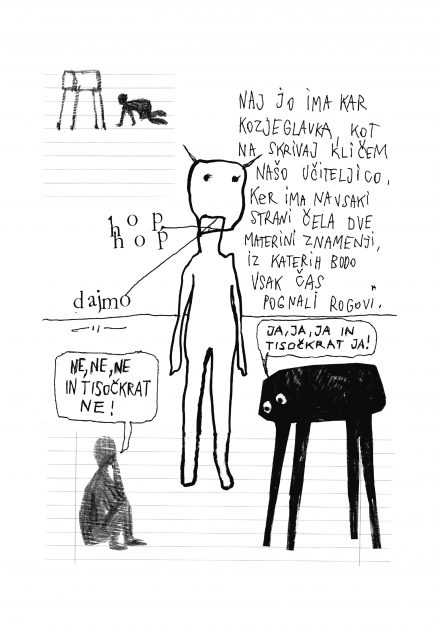 NAJ JO IMA KAR
KOZJEGLAVKA, KOT
NA SKRIVAJ KLIČEM
NAŠO UČITELJICO,
KER IMA NA VSAKI
STRANI ČELA DVE
MATERINI ZNAMENJI,
IZ KATERIH BODO
VSAK ČAS
POGNALI ROGOVI."
hop
hop
dajmo
JA, JA, JA IN
TISOČKRAT JA!
NE, NE, NE
IN TISOČKRAT
NE!